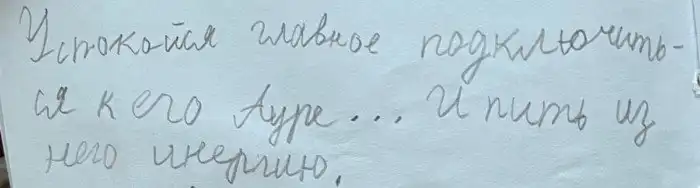 Успокойся главное подключить-
ся к его Ауре... И пить из
него инергию.